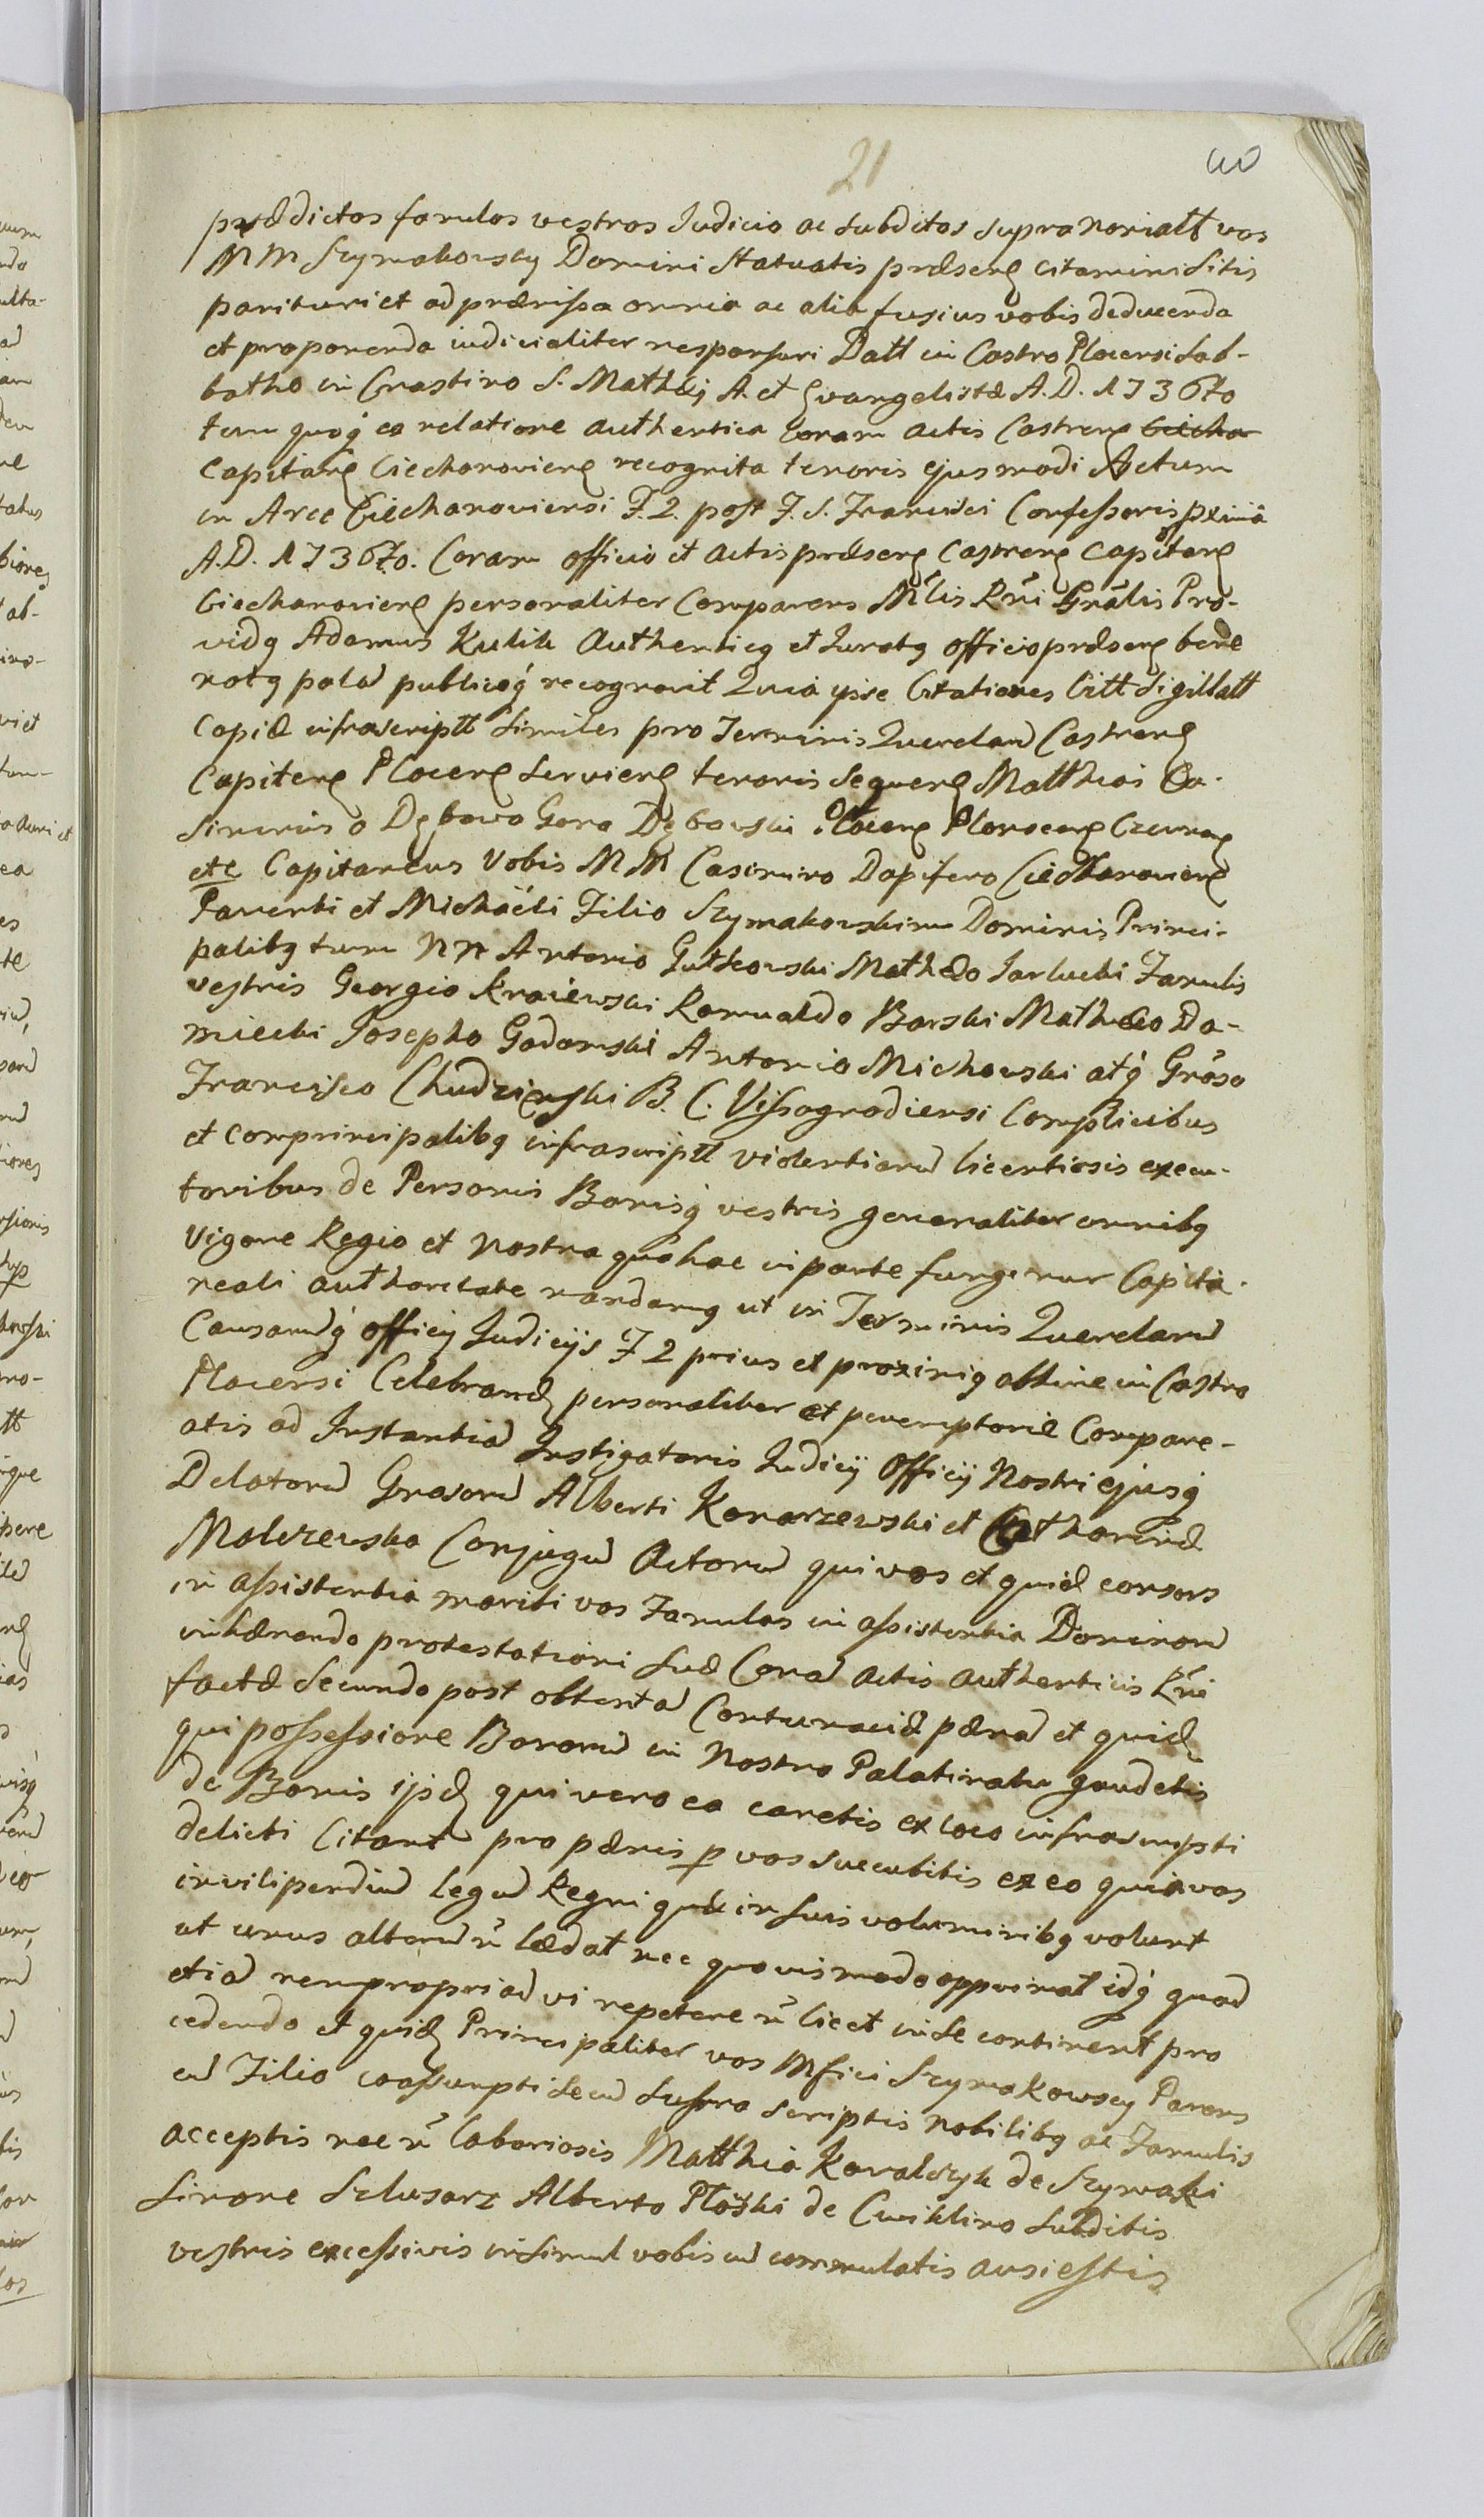 21
40
prædictos famulos vestros Iudicio ac subditos supra noiatt vos
MM Szymakowscy Domini Statuatis præsenꝭ citamini Sitis
parituri et ad præmissa omnia ac alia fusius vobis deducenda
et proponenda iudicialiter responsuri Datt in Castro Plocensi Sab-
batho in Crastino S. Mathæj A. et Evangelistæ A.D. 1736to
tum quoq́ ea relatione authentica Coram actis Castrenꝭ Ciecha
Capitanꝭ Ciechanovienꝭ recognita tenoris ejusmodi Actum
in Arce Ciechanoviensi F. 2. post F. S. Francisci Confessoris pximā
A.D. 1736to. Coram officio et actis præsenꝭ Castrenꝭ Capitanꝭ
Ciechanovienꝭ personaliter Comparens Mĩlis Rñi Grãlis Pro-
vidꝯ Adamus Kulik Authenticꝯ et Iuratꝯ officio præsenꝭ bene
notꝯ palã publicoq́ recognovit Quia ipse Citationes Citt Sigillatt
Copiæ infrascriptt Similes pro Terminis Querelarũ Castrenꝭ
Capitanꝭ Plocenꝭ Servienꝭ tenoris Sequenꝭ Matthias Ca-
Simirus a Dębowa Gora Dębowski Plocenꝭ Plonscenꝭ Czerwenꝭ
etc Capitaneus Vobis MM Casimiro Dapifero Ciechanovienꝭ
Parenti et Michaëli Filio Szymakowskim Dominis Princi-
palibꝯ tum NN Antonio Gutkowski Mathæo Jarlucki Famulis
vestris Georgio Kraiewski Romualdo Barski Mathæo Da-
miecki Josepho Gadomski Antonio Michowski atq́ Grõso
Francisco Chudzieński B. C. Vissogrodiensi Complicibus
et comprincipalibꝯ infrascriptt violentiarũ licentiosis execu-
toribus de Personis Bonisq́ vestris generaliter omnibꝯ
Vigore Regio et nostra quâ hac in parte fungimur Capita-
neali authoritate mandamꝯ ut in Terminis Querelarũ
Causarũq́ officij Iudicijs F 2 prius et proximiꝯ obtine in Castro
Plocensi Celebrandꝭ personaliter et peremptoriè Compare-
atis ad Instantiã Instigatoris Iudicij Officij Nostri ejusq́
Delatorũ Grosorũ Alberti Konarzewski et Catharinæ
Malczewska Conjugũ Actorũ qui vos et quidẽ consors
in assistentia mariti vos Famulos in assistentia Dominorũ
inhærendo protestationi Suæ Corã actis authenticis Rñi
factæ Secundo post obtentã Contumaciæ pænã et quidẽ
qui possessione Bonorũ in Nostro Palatinatu gaudetis
de Bonis ijsdẽ qui vero ea caretis ex loco infrascripti
delicti Citant pro pænis ꝑ vos succubitis ex eo quia vos
in vilipendiũ legũ Regni quæ in suis voluminibꝯ volunt
ut unus alterũ ñ lædat nec quovismodo opprimat idq́ quod
etiã rem propriã vi repetere ñ licet in se continent pro
cedendo et quidẽ Principaliter vos Mfici Szymakowscy Parens
cũ Filio coassumpti Secũ Supra Scriptis Nobilibꝯ ac Famulis
acceptis nec ñ laboriosis Matthia Kowalczyk de Szymaki
Simone Szlusarz Alberto Płoski de Cwiklino Subditis
vestris excessivis insimul vobiscũ commulatis ausi estis